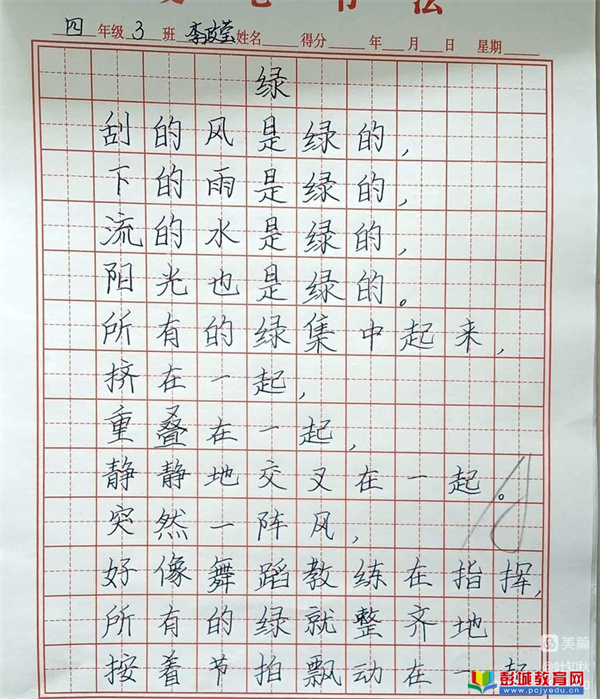 四年级3班 李政莹姓名 得分 年 月 日 星期
绿
刮的风是绿的，
下的雨是绿的，
流的水是绿的，
阳光也是绿的。
所有的绿集中起来，
挤在一起，
重叠在一起，
静静地交叉在一起。
突然一阵风，
好像舞蹈教练在指挥，
所有的绿就整齐地
按着节拍飘动在一起
美篇
@叶知秋
彭城教育网
pcjyedu.com